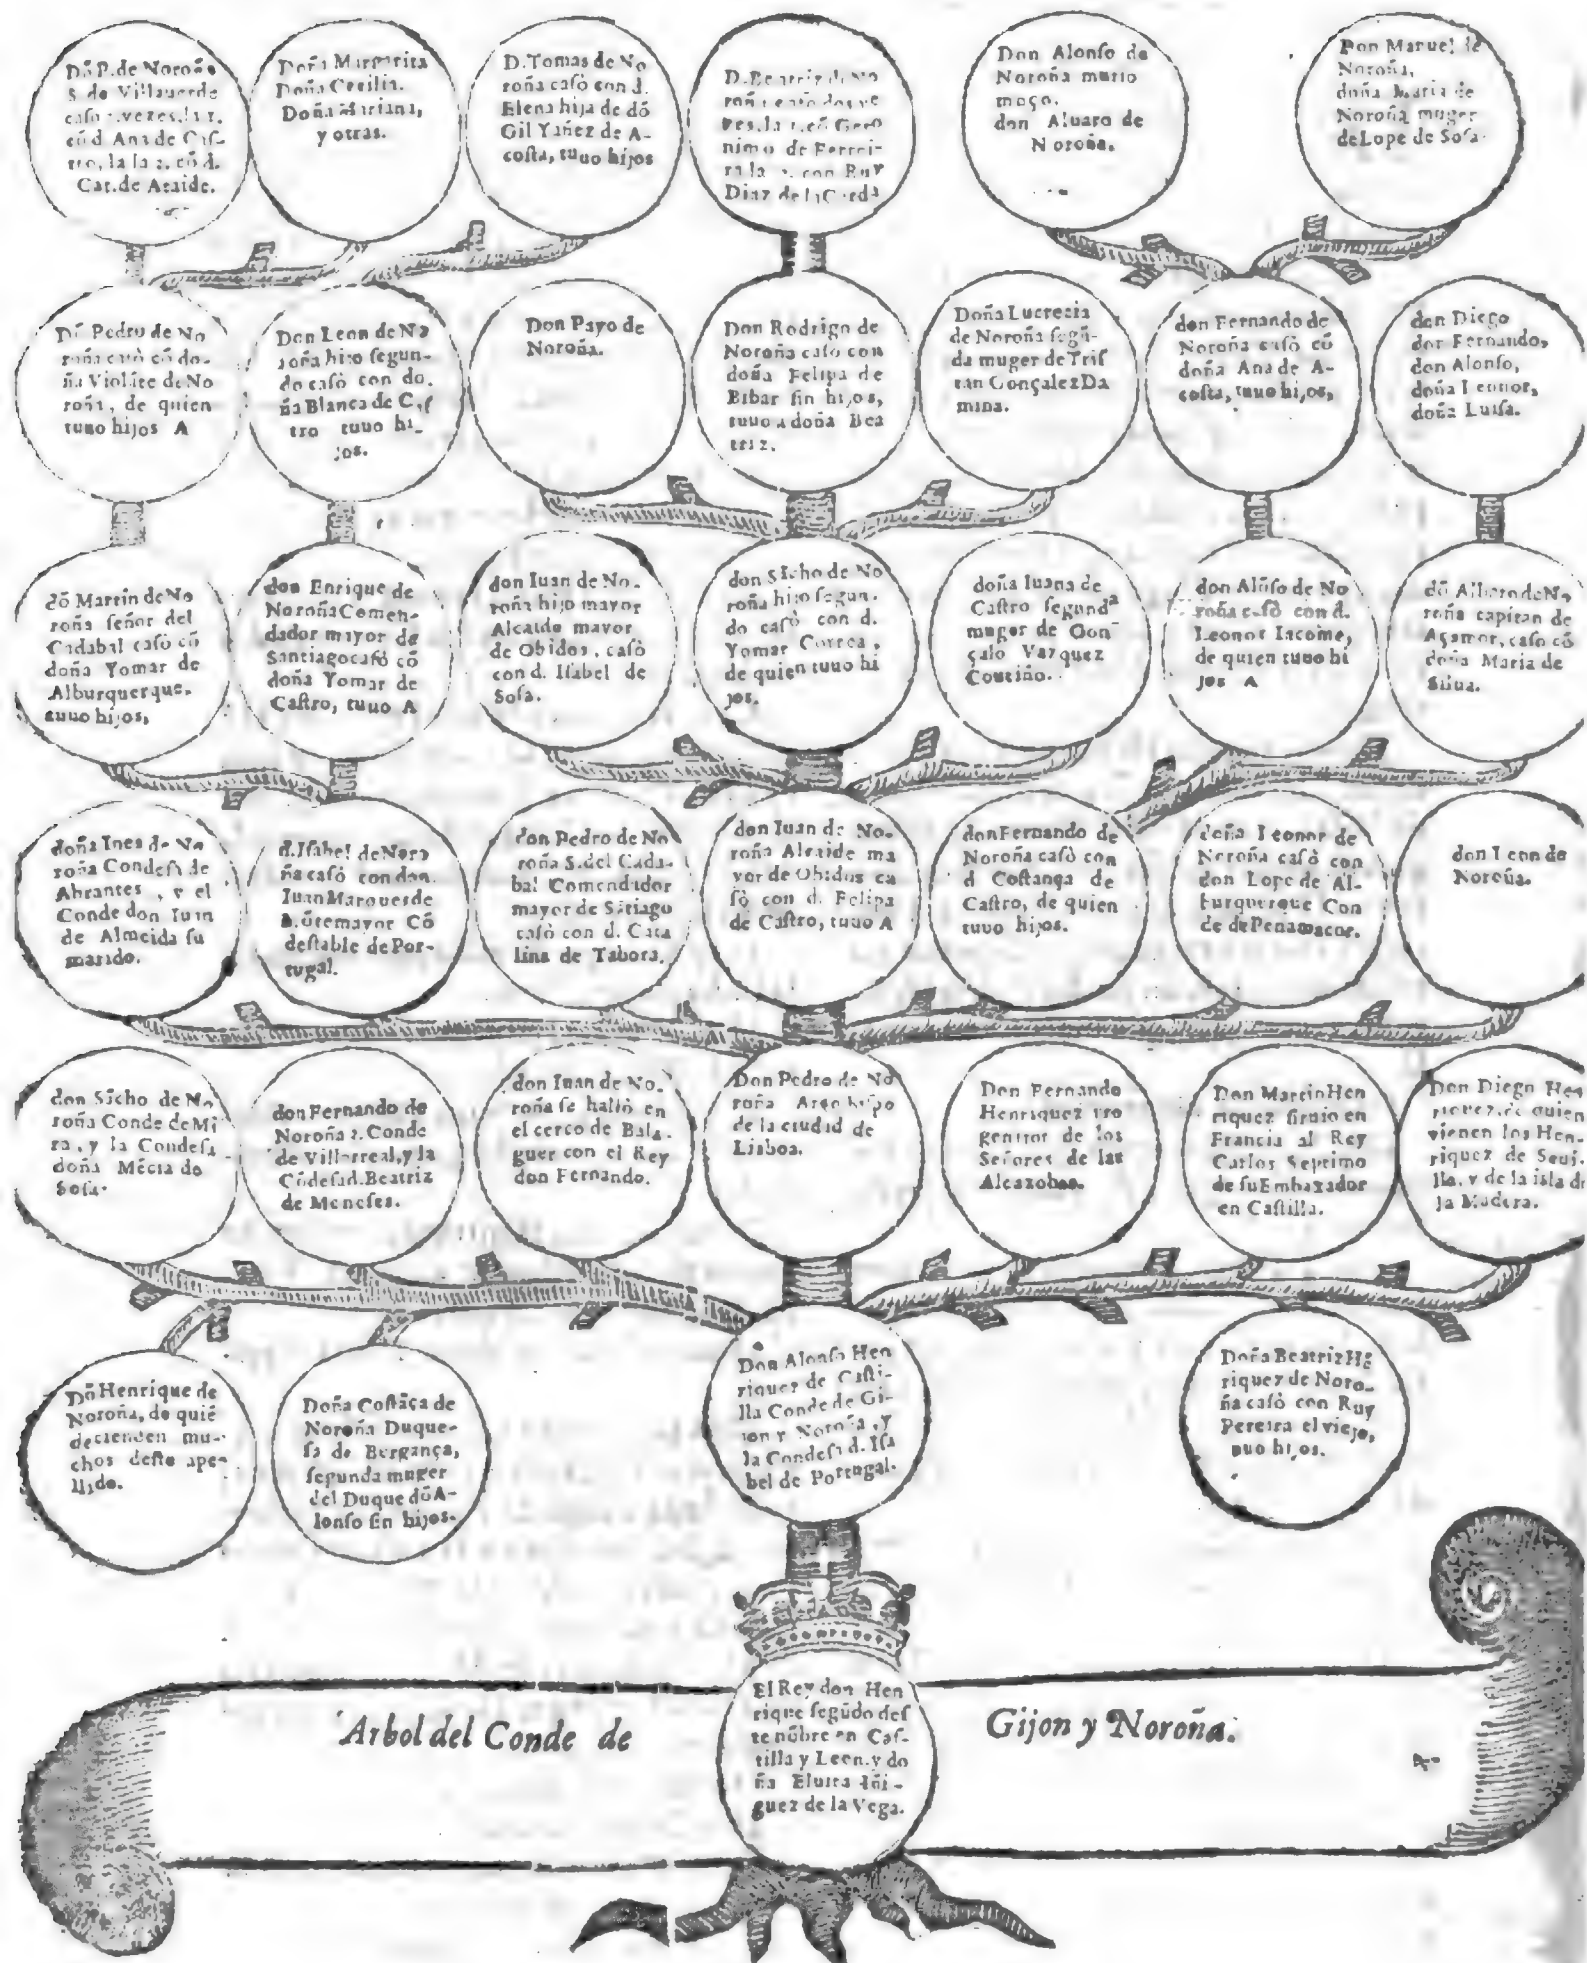 Dõ P. de Noroña
S. de Villauerde
casò 2. vezes, la 1.
cõ d. Ana de Cas-
tro, la la 2. cõ d.
Cat. de Ataide.
Doña Margarita
Doña Cecilia.
Doña Mariana,
y otras.
D. Tomas de No
roña casò con d.
Elena hija de dõ
Gil Yañez de A-
costa, tuuo hijos
D. Beatriz de No
roña casò dos ve
zes, la 1. cõ Gero
nimo de Ferrei-
ra la 2. con Ruy
Diaz de la Cerda
Don Alonso de
Noroña murio
moço.
don Aluaro de
Noroña.
Don Manuel de
Noroña,
doña Maria de
Noroña muger
de Lope de Sosa.
Dõ Pedro de No
roña casò cõ do-
ña Violãte de No
roña, de quien
tuuo hijos A
Don Leon de No
roña hijo segun-
do casò con do-
ña Blanca de Cas
tro tuuo hi-
jos.
Don Payo de
Noroña.
Don Rodrigo de
Noroña casò con
doña Felipa de
Bibar sin hijos,
tuuo a doña Bea
triz.
Doña Lucrecia
de Noroña segũ-
da muger de Tris
tan Gonçalez Da
mina.
don Fernando de
Noroña casò cõ
doña Ana de A-
costa, tuuo hijos,
don Diego
don Fernando,
don Alonso,
doña Leonor,
doña Luisa.
dõ Martin de No
roña señor del
Cadabal casò cõ
doña Yomar de
Alburquerque.
tuuo hijos,
don Enrique de
Noroña Comen-
dador mayor de
Santiago casò cõ
doña Yomar de
Castro, tuuo A
don Iuan de No-
roña hijo mayor
Alcaide mayor
de Obidos, casò
con d. Isabel de
Sosa.
don Sãcho de No
roña hijo segun-
do casò con d.
Yomar Correa,
de quien tuuo hi
jos.
doña Iuana de
Castro segunda
muger de Gon
çalo Vazquez
Coutiño.
don Alõso de No
roña casò con d.
Leonor Iacome,
de quien tuuo hi
jos A
dõ Albaro de No
roña capitan de
Açamor, casò cõ
doña Maria de
Silua.
doña Ines de No
roña Condesa de
Abrantes, y el
Conde don Iuan
de Almeida su
marido.
d. Isabel de Noro
ña casò con don
Iuan Marques de
Mõtemayor Cõ
destable de Por-
tugal.
don Pedro de No
roña S. del Cada-
bal Comendador
mayor de Sãtiago
casò con d. Cata
lina de Tabora.
don Iuan de No-
roña Alcaide ma
yor de Obidos ca
sò con d. Felipa
de Castro, tuuo A
don Fernando de
Noroña casò con
d Costança de
Castro, de quien
tuuo hijos.
doña Leonor de
Noroña casò con
don Lope de Al-
burquerque Con
de de Penamacor.
don Leon de
Noroña.
don Sãcho de No
roña Conde de Mi
ra, y la Condesa
doña Mécia de
Sosa.
don Fernando de
Noroña 2. Conde
de Villarreal, y la
Cõdesa d. Beatriz
de Meneses.
don Iuan de No-
roña se hallò en
el cerco de Bala-
guer con el Rey
don Fernando.
Don Pedro de No
roña Arçobispo
de la ciudad de
Lisboa.
Don Fernando
Henriquez pro
genitor de los
Señores de las
Alcazobas.
Don Martin Hen
riquez siruio en
Francia al Rey
Carlos Septimo
de su Embaxador
en Castilla.
Don Diego Hen
riquez, de quien
vienen los Hen-
riquez de Seui-
lla, y de la isla de
la Madera.
Dõ Henrique de
Noroña, de quiẽ
decienden mu-
chos deste ape-
llido.
Doña Costãça de
Noroña Duque-
sa de Bergança,
segunda muger
del Duque dõ A-
lonso sin hijos.
Don Alonso Hen
riquez de Casti-
lla Conde de Gi-
jon y Noroña, y
la Condesa d. Isa
bel de Portugal.
Doña Beatriz Hẽ
riquez de Noro-
ña casò con Ruy
Pereira el viejo,
tuuo hijos.
El Rey don Hen
rique segũdo des
te nõbre en Cas-
tilla y Leon, y do
ña Eluira Iñi-
guez de la Vega.
Arbol del Conde de Gijon y Noroña.